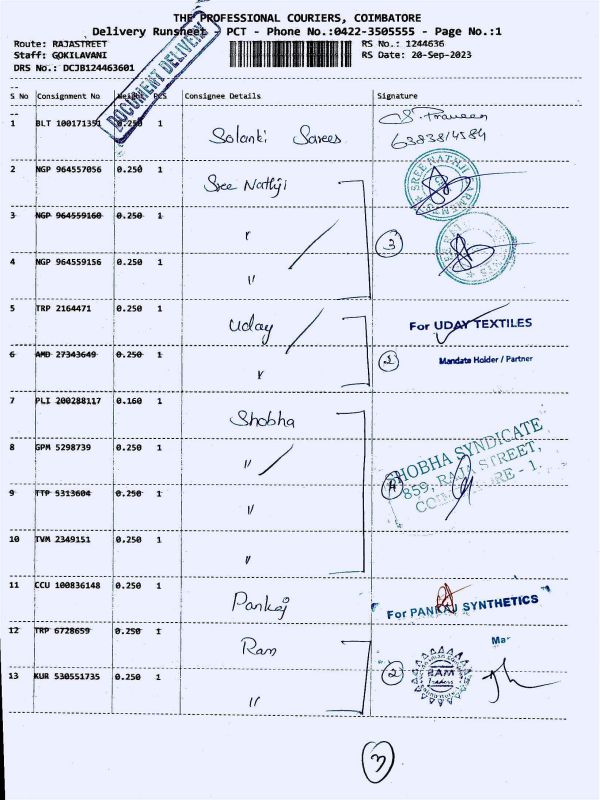 THE PROFESSIONAL COURIERS, COIMBATORE
Delivery Runsheet - PCT - Phone No.:0422-3505555 - Page No.:1
Route: RAJASTREET RS No.: 1244636
Staff: GOKILAVANI RS Date: 20-Sep-2023
DRS No.: DCJB124463601
DOCUMENT DELIVERY
S No Consignment No Weight PCS Consignee Details Signature
1 BLT 100171351 0.250 1 Solanki Sarees S. Praveen
6383814584
2 NGP 964557056 0.250 1 Sree Nathji
SREE NATHJI GARMENTS
3 NGP 964559160 0.250 1 "
3
4 NGP 964559156 0.250 1 "
5 TRP 2164471 0.250 1 Uday For UDAY TEXTILES
6 AMD 27343649 0.250 1 " 2 Mandate Holder / Partner
7 PLI 200288117 0.160 1 Shobha
8 GPM 5298739 0.250 1 "
SHOBHA SYNDICATE
859, RAJA STREET,
COIMBATORE - 1.
9 TTP 5313604 0.250 1 " 4
10 TVM 2349151 0.250 1 "
11 CCU 100836148 0.250 1 Pankaj For PANKAJ SYNTHETICS
12 TRP 6728659 0.250 1 Ram
Ma
13 KUR 530551735 0.250 1 " 2 RAM
Traders
3